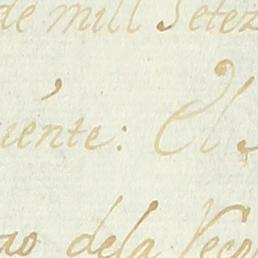 de mill Setez
uente: El S
ao dela Veco